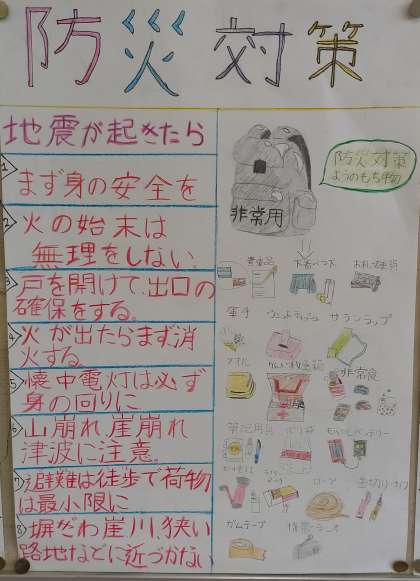 防災対策
地震が起きたら
1 まず身の安全を
2 火の始末は
無理をしない
3 戸を開けて、出口の
確保をする。
4 火が出たらまず消
火する
5 懐中電灯は必ず
身の回りに
6 山崩れ崖崩れ
津波に注意。
7 避難は徒歩で荷物
は最小限に
8 塀ぎわ崖川、狭い
路地などに近づかない
非常用
防災対策
ようのもち物
貴重品
軍手
ウェットティッシュ
サランラップ
タオル
非常食
筆記用具
ポリ袋
ロープ
ガムテープ
携帯ラジオ